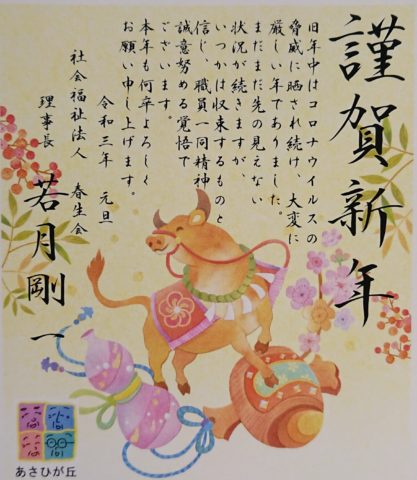 謹賀新年
旧年中はコロナウイルスの
脅威に晒され続け、大変に
厳しい年でありました。
まだまだ先の見えない
状況が続きますが、
いつかは収束するものと
信じ、職員一同精神
誠意努める覚悟で
ございます。
本年も何卒よろしく
お願い申し上げます。
令和三年 元旦
社会福祉法人 春生会
理事長 若月剛一
あさひが丘